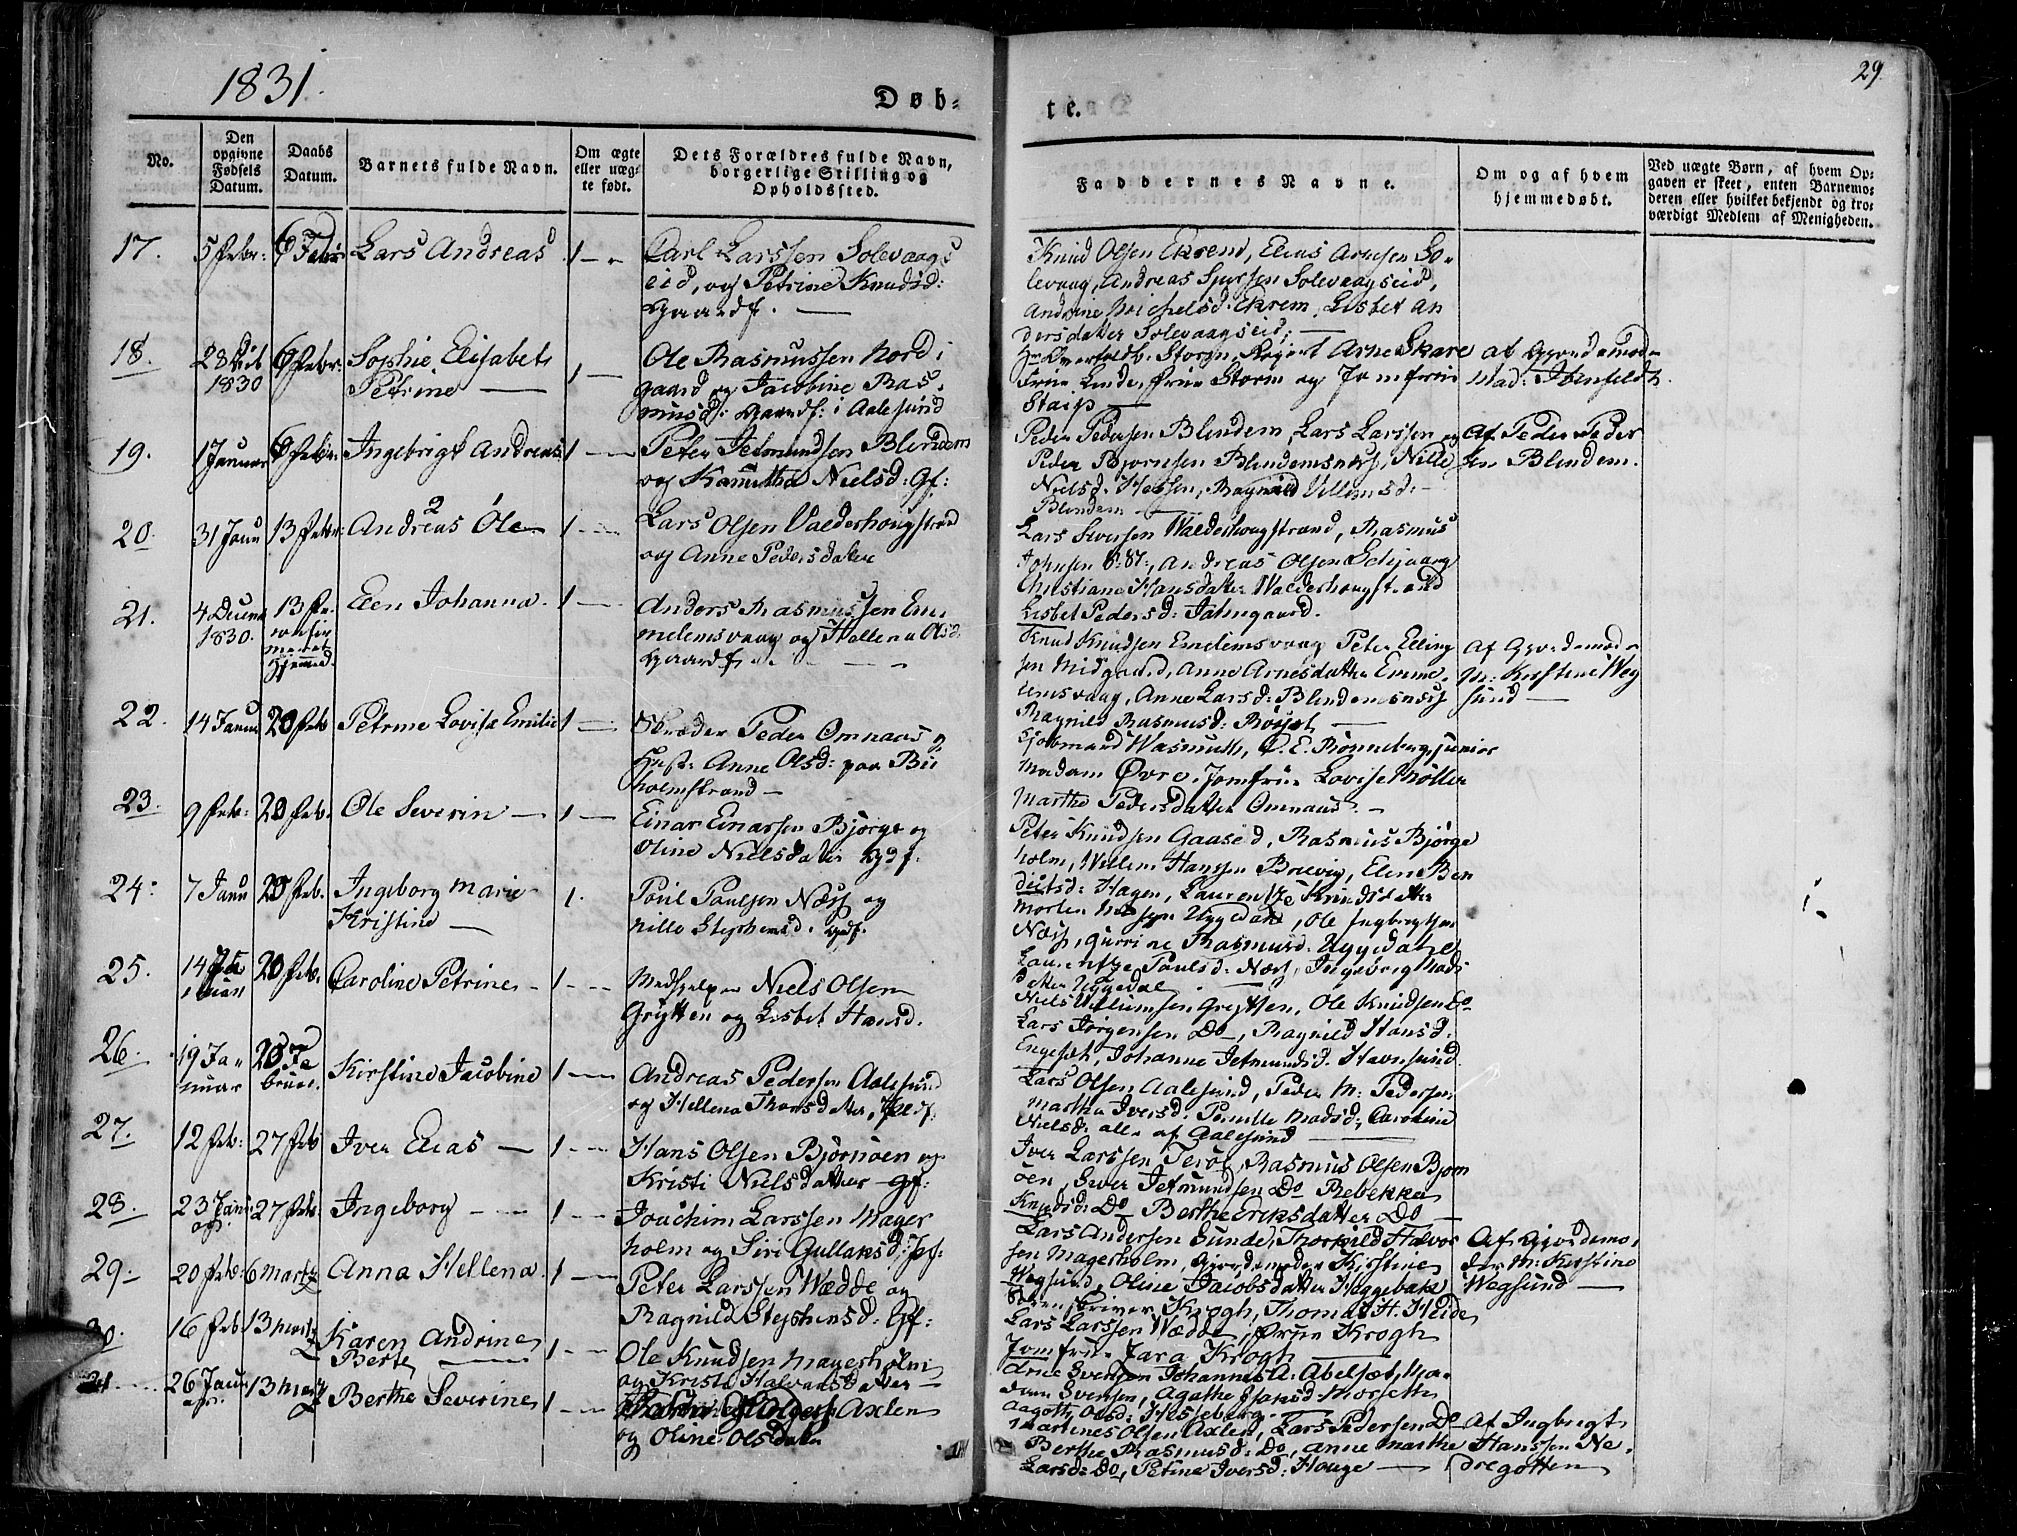 1831.
29
Døb-
te.
No.
Den opgivne Fødsels Datum.
Daabs Datum.
Barnets fulde Navn.
Om ægte eller uæg-te født.
Dets Forældres fulde Navn, borgerlige Stilling og Opholdssted.
Faddernes Navne.
Om og af hvem hjemmedøbt.
Ved uægte Børn, af hvem Op-gaven er skeet, enten Barnemo-deren eller hvilket bekjendt og tro-værdigt Medlem af Menigheden.
17. 5 Febr: 6 Febr: Lars Andreas 1
Carl Larssen Solevaags
eid, og Petrine Knudsd:
Gaardf.
Knud Olsen Ekrem, Elias Arnesen So-
levaag, Andreas Solevaagseid,
Andrine Ekrem, Lisbet An
dersdatter Solevaagseid;
18. 28 1830 6 Febr: Sophie Elisabet
Petrine 1
Ole Rasmussen Nord i
gaard og Jacobine Ras-
musd: Gaardf: i Aalesund
Storm, Arne Skare
Frue Linde, Frue Storm og Jomfrue
Staip
af Gjordemoder
Mad: Ibenfeldt.
19. 1 Januar 6 Febr: Ingebrigt Andreas 1
Peter Jetmundsen Blindem
og Nielsd: Gf:
Peder Pedersen Blindem, Lars Larssen og
Peder Bjørnsen Blindemsnæs, Nille
Nielsd: Hessen, Ragnild Villumsd:
Blindem
Af Peder Peder
sen Blindem.
20. 31 Janu 13 Febr: Andreas 2 Ole 1
Lars Olsen Valderhougstrand
og Anne Pedersdatter
Lars Sivertsen Walderhougstrand, Rasmus
Johnsen, Andreas Olsen
Christiane Hansdatter Walderhougstrand
Lisbet Pedersd: Jatmgaard.
21. 4 Decemb 1830. 13 Fe. Hjemmed. Elen Johanna. 1
Anders Rasmussen Em-
melemsvaag og Hellena Olsd:
Gaardf.
Knud Knudsen Emelemsvaag Peter Elling
sen Midgaard, Anne Arnesdatter Emme-
lemsvaag, Anne Larsd: Blindemsnæs
Ragnild Rasmusd:
Af Gjordemoder
M: Kirstine Weg
sund
22. 14 Januar 20 Feb Petrine Lovise Emilie 1
Skræder Peder Omnaas og
Hust: Anne Olsd: paa Bu
holmstrand
Wasmuth, C. E. Rønneberg junior
Madam Øvre, Jomfrue Lovise Møller
Marthe Pedersdatter Omnaas.
23. 9 Feb: 20 Feb. Ole Severin 1
Einar Einarsen Bjørge og
Oline Nielsdatter Gdf.
Peter Knudsen Gaaseid, Rasmus Bjørge
holm, Willem Hanssen Brevig, Elen Ben
dictsd: Hagen, Laurentze Knudsdatter
24. 7 Janu 20 Feb. Ingeborg Marie
Kristine 1.
Poul Poulsen Næss og
Nille Stephensd. Gdf.
Morten Uggedal, Ole Ingbrigtsen
Næss, Gurrine Rasmusd: Uggedal
Laurentze Poulsd: Næss, Ingeborg Mads
datter Uggedal
25. 14 Januari 20 Feb. Caroline Petrine 1
Niels Olsen
Grytten og Lisbet Hansd.
Niels Villumsen Grytten, Ole Knudsen Do
Lars Jørgensen Do, Ragnild Hansd.
Engeset, Johanne Jetmundsd. Havnsund
26. 19 Januar 20 Februar. Kirstine Jacobine 1
Andreas Pedersen Aalesund
og Hellena Thorsdatter,
Lars Olsen Aalesund, Peder M: Pedersen
Martha Iversd: Pernille Madsd: Caroline
Nielsd: alle af Aalesund
27. 12 Feb: 27 Feb Iver Elias 1
Hans Olsen Bjørnøen og
Kristi Nielsdatter Gf:
Iver Larssen Terøe, Rasmus Olsen Bjørn
øen, Siver Jetmundsen Do Rebekka
Knudsd: Do Berthe Eriksdatter Do
28. 23 Janu 27 Feb. Ingeborg 1
Jouchim Larssen Mager
holm og Siri Gullaksd:
Lars Andersen Sunde, Thorkild Halvor
sen Magerholm, Gjordemoder Kirstine
Wegsund, Oline Jacobsdatter Heggebak
Af Gjordemo-
der M: Kirstine
Wegsund
29. 20 Feb: 6 Martz Anna Hellena. 1
Peter Larssen Wædde og
Ragnild Stephensd: Gf:
Sorenskriver Krogh, Thomas H. Heide
Lars Larssen Wædde, Frue Krogh
Jomfrue Krogh
30. 16 Feb 13 Martz Karen Andrine
Berte 1
Ole Knudsen Magerholm
og Kristi Halvorsdatter
Johannes A: Abelset, Ma-
dam Svensen, Agathe
Aagott Olsd: Hesseberg.
31. 26 Janu 13 Martz Berthe Severine 1
Axlen
og Oline Olsdatter
Martines Olsen Axlen, Lars Pedersen Do
Berthe Rasmusd: Do, Anne Marthe
Larsd: Do, Petrine Iversd: Houge
Af Ingbrigt
Hanssen Ne-
dregotten